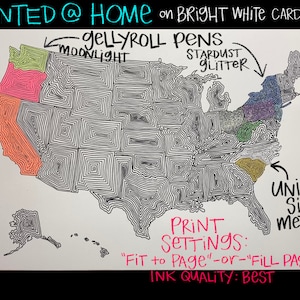 NTED @ HOME on BRIGHT WHITE CARD
gellyRoll PENS
MOONLIGHT
STARDUST
GLITTER
UNI
Si
ME
PRINT
SETTINGS:
"FIT to PAGE"-or-"FILL PAG
INK QUALITY: BEST